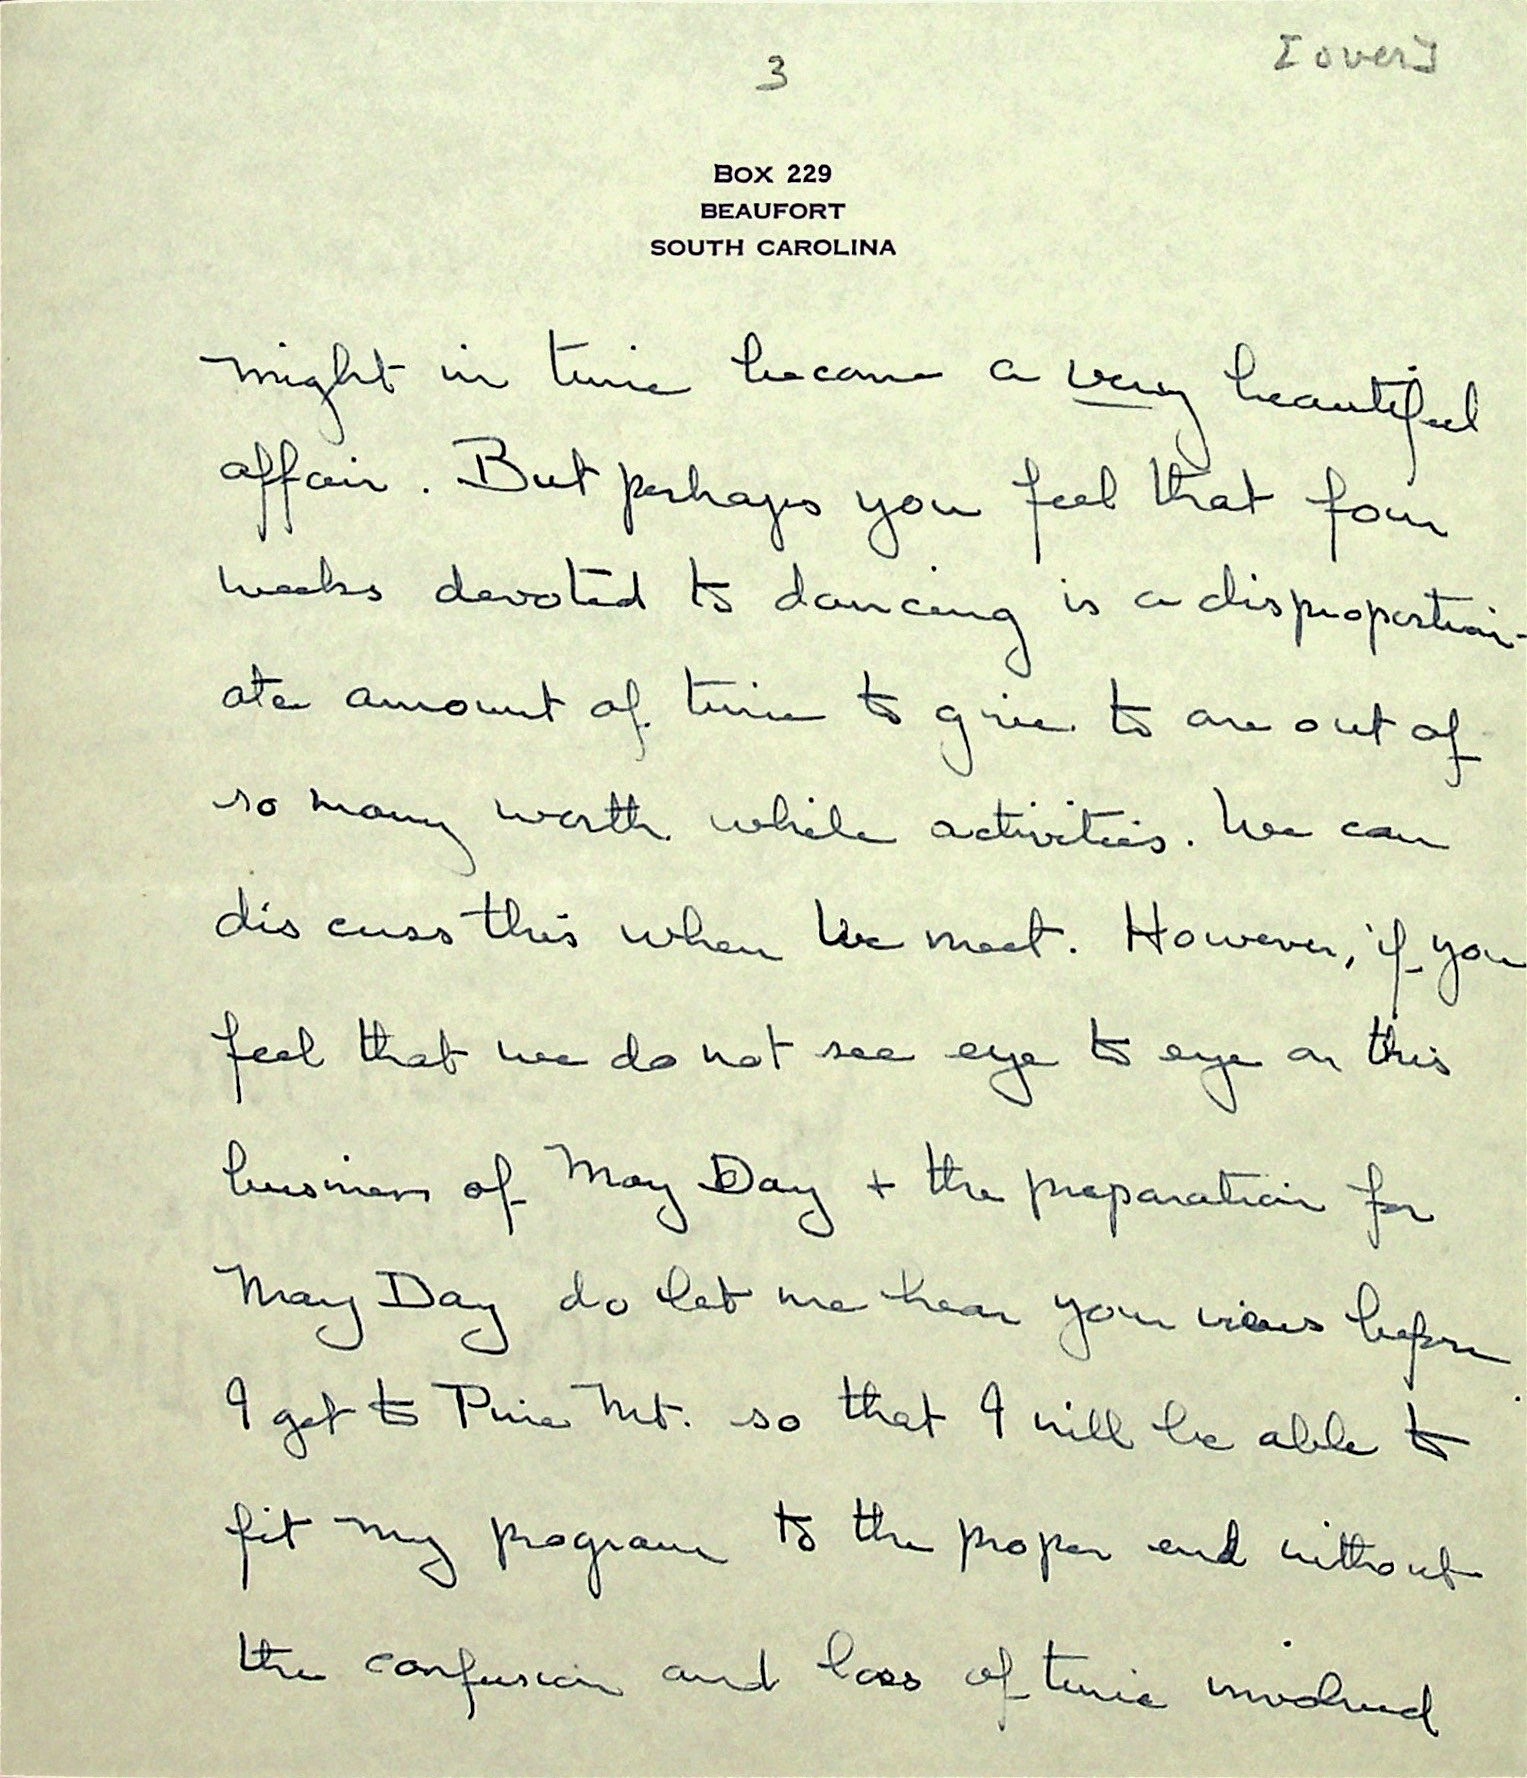 3
[over]
BOX 229
BEAUFORT
SOUTH CAROLINA
might in time become a very beautiful
affair. But perhaps you feel that four
weeks devoted to dancing is a disproportion-
ate amount of time to give to one out of
so many worth while activities. We can
discuss this when we meet. However, if you
feel that we do not see eye to eye on this
business of May Day + the preparation for
May Day do let me hear your views before
I get to Pine Mt. so that I will be able to
fit my program to the proper end without
the confusion and loss of time involved